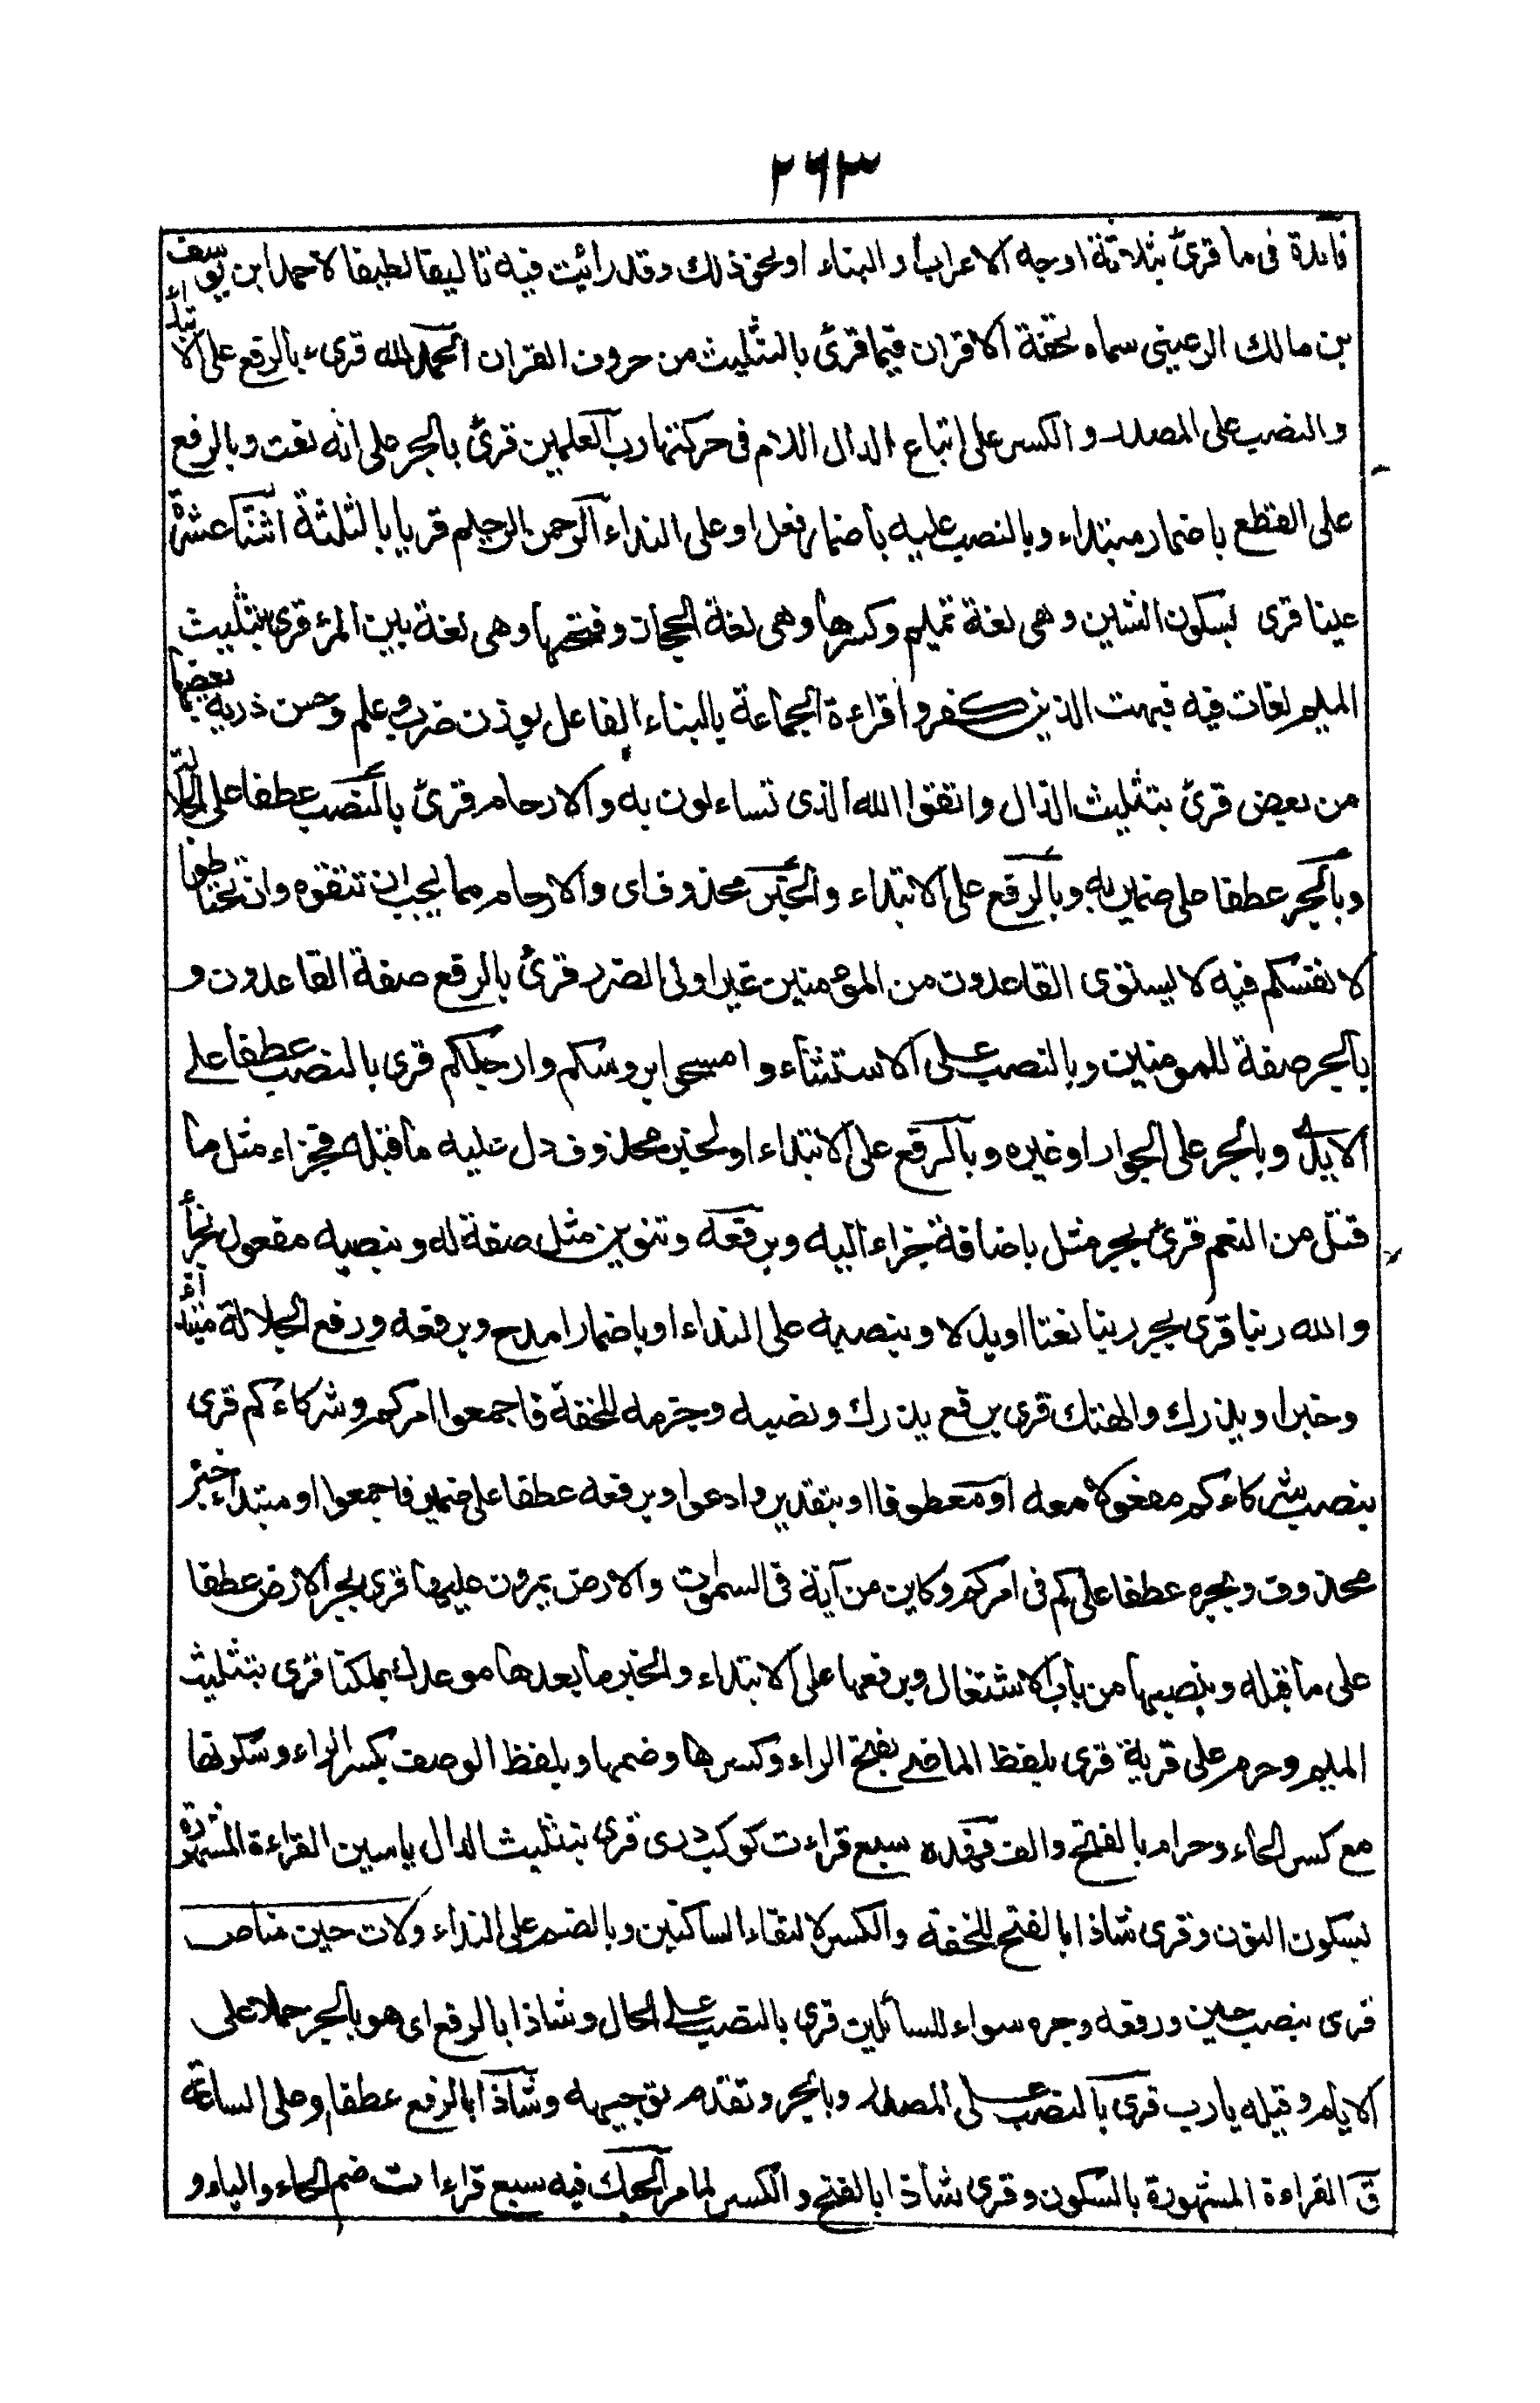 ٢٦٣
فائدة فى ما قرئ بثلاثة اوجه الاعراب او البناء او نحو ذلك وقد رائيت فيه تاليفا لطيفا لاحمد ابن يوسف
بن مالك الرعينى سماه تحفة الاقران فيما قرئ بالتثليث من حروف القران الحمد لله قرىء بالرفع على الابتداء
والنصب على المصدر والكسر على اتباع الدال اللام فى حركتها رب العلمين قرئ بالجر على انه نعت وبالرفع
على القطع باضمار مبتداء وبالنصب عليه باضمار فعل او على النداء الرحمن الرحيم قريا بالثلثة اثنتا عشرة
عينا قرى بسكون الشين وهى لغة تميم وكسرها وهى لغة الحجاز وفتحها وهى لغة بين المرء قرى بتثليث
الميم لغات فيه فبهت الذين كفروا قراءة الجماعة بالبناء الفاعل بوزن ضرب وعلم وحسن ذرية بعضها
من بعض قرئ بتثليث الذال واتقوا الله الذى تساءلون به والارحام قرئ بالنصب عطفا على الجلالة
وبالجر عطفا على ضمير به وبالرفع على الابتداء والخبر محذوف اى والارحام مما يجب ان تتقوه وان تحتاطوا
لانفسكم فيه لا يستوى القاعدون من المؤمنين غير اولى الضرر قرئ بالرفع صفة القاعدون و
بالجر صفة للمومنين وبالنصب على الاستثناء وامسحوا بروسكم وارجلكم قرى بالنصب عطفا على
الايدى وبالجر على الجوار او غيره وبالرفع على الابتداء او لخبر محذوف دل عليه ما قبله فجزاء مثل ما
قتل من النعم قرئ بجر مثل باضافة جزاء اليه وبرفعه وتنوين مثل صفة له وبنصبه مفعول بجزاء
والله ربنا قرى بجر ربنا نعتا او بدلا وبنصبه على النداء او باضمار امدح وبرفعه ورفع الجلالة مبتداء
وخبرا ويذرك والهتك قرى برفع يذرك ونصبه وجزمه للخفة فاجمعوا امركم وشركاءكم قرى
بنصب شركاءكم مفعولا معه او معطوفا او بتقدير وادعوا وبرفعه عطفا على ضمير فاجمعوا او مبتداء خبر
محذوف وبجره عطفا على كم فى امركم وكاين من آية فى السموات والارض يمرون عليها قرى بجر الارض عطفا
على ما قبله وبنصبها من باب الاشتغال وبرفعها على الابتداء والخبر ما بعدها موعدك بملكنا قرى بتثليث
الميم وحرم على قرية قرى بلفظ الماضى بفتح الراء وكسرها وضمها وبلفظ الوصف بكسر الراء وسكونها
مع كسر الحاء وحرام بالفتح والف فهذه سبع قراءت كوكب درى قرى بتثليث الدال ياسين القراءة المشهورة
بسكون النون وقرى شاذا بالفتح للخفة والكسر لالتقاء الساكنين وبالضم على النداء ولات حين مناص
قرى بنصب حين ورفعه وجره سواء للسائلين قرى بالنصب على الحال وشاذا بالرفع اى هو بالجر حملا على
الايام وقيله يا رب قرى بالنصب على المصدر وبالجر وتقدم توجيهه وشاذا بالرفع عطفا وعلى الساعة
ق القراءة المشهورة بالسكون وقرى شاذا بالفتح والكسر لما مر الحبك فيه سبع قراءات ضم الحاء والباء و